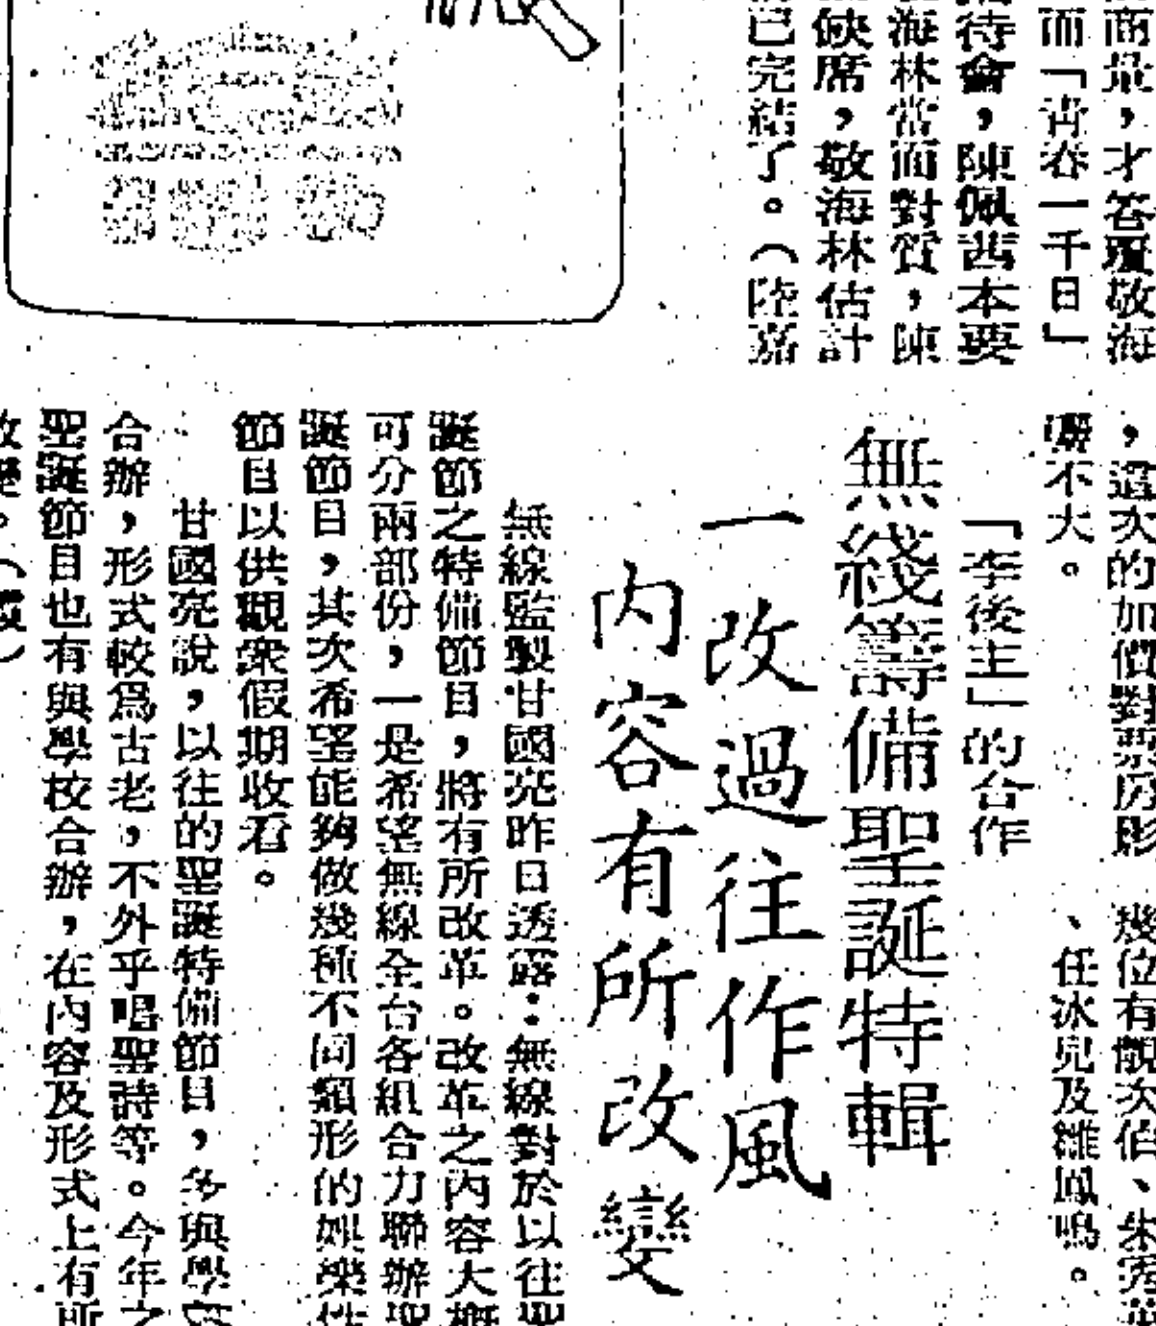 商量，才答覆敬海
而「青春一千日」
待會，陳佩茜本要
海林當面對質，陳
缺席，敬海林估計
已完結了。（陸嘉
，這次的加價對票房影
響不大。
幾位有靚次伯、朱秀英
、任冰兒及雛鳳鳴。
「李後主」的合作
無綫籌備聖誕特輯
一改過往作風
內容有所改變
無線監製甘國亮昨日透露：無線對於以往聖
誕節之特備節目，將有所改革。改革之內容大概
可分兩部份，一是希望無線全台各組合力聯辦聖
誕節目，其次希望能夠做幾種不同類形的娛樂性
節目以供觀衆假期收看。
甘國亮說，以往的聖誕特備節目，多與學校
合辦，形式較爲古老，不外乎唱聖詩等。今年之
聖誕節目也有與學校合辦，在內容及形式上有所
改變。（霞）